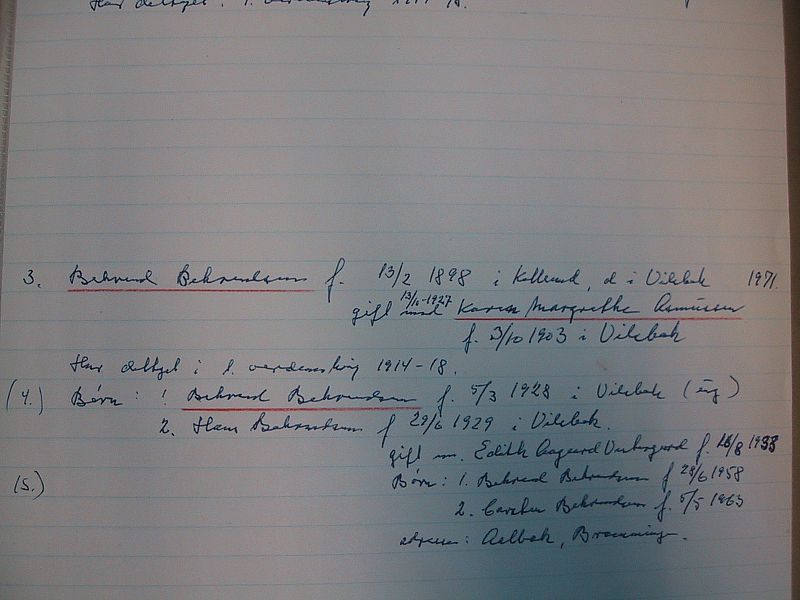 Har deltget i 1. verdenskrig 1914-18.
3. Behrend Behrendsen f. 13/2 1898 i Kollund, d i Vilsbæk 1971.
gift 13/10-1927 med Karen Margrethe Asmussen
f. 3/10 1903 i Vilsbæk
Har deltget i 1. verdenskrig 1914-18.
(4.) Børn: 1 Behrend Behrendsen f. 5/3 1928 i Vilsbæk (ug)
2. Hans Behrendsen f 29/6 1929 i Vilsbæk.
gift m. Edith Aagaard f. /8 1933
(5.) Børn: 1. Behrend Behrendsen f 28/6 1958
2. Carsten Behrendsen f. 5/5 1963
adresse: Aalbæk, Bramminge.